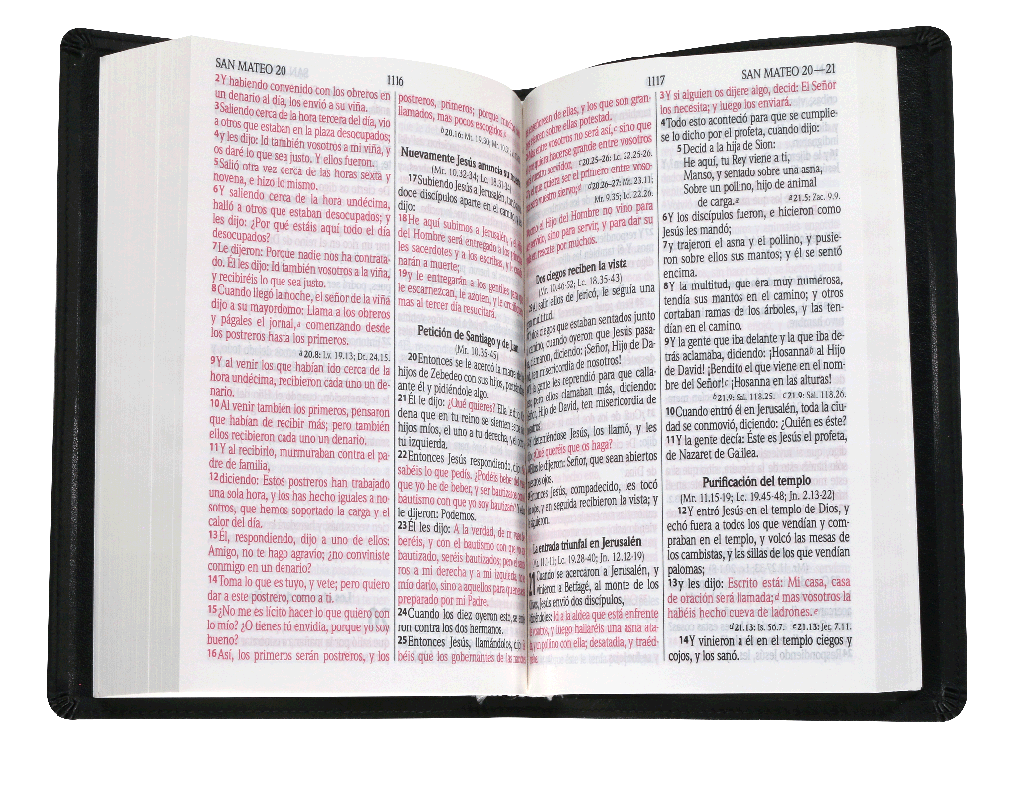 SAN MATEO 20
1116
2Y habiendo convenido con los obreros en
un denario al día, los envió a su viña.
3Saliendo cerca de la hora tercera del día, vio
a otros que estaban en la plaza desocupados;
4y les dijo: Id también vosotros a mi viña, y
os daré lo que sea justo. Y ellos fueron.
5Salió otra vez cerca de las horas sexta y
novena, e hizo lo mismo.
6Y saliendo cerca de la hora undécima,
halló a otros que estaban desocupados; y
les dijo: ¿Por qué estáis aquí todo el día
desocupados?
7Le dijeron: Porque nadie nos ha contrata-
do. Él les dijo: Id también vosotros a la viña,
y recibiréis lo que sea justo.
8Cuando llegó la noche, el señor de la viña
dijo a su mayordomo: Llama a los obreros
y págales el jornal,a comenzando desde
los postreros hasta los primeros.
a20.8: Lv. 19.13; Dt. 24.15.
9Y al venir los que habían ido cerca de la
hora undécima, recibieron cada uno un de-
nario.
10Al venir también los primeros, pensaron
que habían de recibir más; pero también
ellos recibieron cada uno un denario.
11Y al recibirlo, murmuraban contra el pa-
dre de familia,
12diciendo: Estos postreros han trabajado
una sola hora, y los has hecho iguales a no-
sotros, que hemos soportado la carga y el
calor del día.
13Él, respondiendo, dijo a uno de ellos:
Amigo, no te hago agravio; ¿no conviniste
conmigo en un denario?
14Toma lo que es tuyo, y vete; pero quiero
dar a este postrero, como a ti.
15¿No me es lícito hacer lo que quiero con
lo mío? ¿O tienes tú envidia, porque yo soy
bueno?
16Así, los primeros serán postreros, y los
postreros, primeros; porque
llamados, mas pocos escogidos.b
b20.16: Mt. 19.30; Mr.
Nuevamente Jesús anuncia su
(Mr. 10.32-34; Lc. 18.31-34)
17Subiendo Jesús a Jerusalén,
doce discípulos aparte en el camino
dijo:
18He aquí subimos a Jerusalén, y el
del Hombre será entregado a los
les sacerdotes y a los escribas, y
narán a muerte;
19y le entregarán a los gentiles
le escarnezcan, le azoten, y le
mas al tercer día resucitará.
Petición de Santiago y de Juan
(Mr. 10.35-45)
20Entonces se le acercó la madre
hijos de Zebedeo con sus hijos,
ante él y pidiéndole algo.
21Él le dijo: ¿Qué quieres? Ella
dena que en tu reino se sienten
hijos míos, el uno a tu derecha, y
tu izquierda.
22Entonces Jesús respondiendo,
sabéis lo que pedís. ¿Podéis beber
que yo he de beber, y ser bautizados
bautismo con que yo soy bautizado?
le dijeron: Podemos.
23Él les dijo: A la verdad, de mi
beréis, y con el bautismo con que
bautizado, seréis bautizados; pero el
ros a mi derecha y a mi izquierda, no
mío darlo, sino a aquellos para quienes
preparado por mi Padre.
24Cuando los diez oyeron esto, se
ron contra los dos hermanos.
25Entonces Jesús, llamándolos,
béis que los gobernantes de las
1117
SAN MATEO 20—21
de ellas, y los que son gran-
sobre ellas potestad.
entre vosotros no será así,c sino que
quiera hacerse grande entre vosotros
servidor. c20.25-26: Lc. 22.25-26.
que quiera ser el primero entre voso-
vuestro siervo;d d20.26-27: Mt. 23.11;
Mr. 9.35; Lc. 22.26.
el Hijo del Hombre no vino para
servido, sino para servir, y para dar su
en rescate por muchos.
Dos ciegos reciben la vista
(Mr. 10.46-52; Lc. 18.35-43)
salir ellos de Jericó, le seguía una
multitud.
dos ciegos que estaban sentados junto
camino, cuando oyeron que Jesús pasa-
clamaron, diciendo: ¡Señor, Hijo de Da-
ten misericordia de nosotros!
la gente les reprendió para que calla-
pero ellos clamaban más, diciendo:
Señor, Hijo de David, ten misericordia de
deteniéndose Jesús, los llamó, y les
¿Qué queréis que os haga?
Ellos le dijeron: Señor, que sean abiertos
ojos.
Entonces Jesús, compadecido, les tocó
los ojos, y en seguida recibieron la vista; y
siguieron.
La entrada triunfal en Jerusalén
(Mr. 11.1-11; Lc. 19.28-40; Jn. 12.12-19)
Cuando se acercaron a Jerusalén, y
vinieron a Betfagé, al monte de los
Olivos, Jesús envió dos discípulos,
diciéndoles: Id a la aldea que está enfrente
de vosotros, y luego hallaréis una asna ata-
da, y un pollino con ella; desatadla, y traéd-
3Y si alguien os dijere algo, decid: El Señor
los necesita; y luego los enviará.
4Todo esto aconteció para que se cumplie-
se lo dicho por el profeta, cuando dijo:
5Decid a la hija de Sion:
He aquí, tu Rey viene a ti,
Manso, y sentado sobre una asna,
Sobre un pollino, hijo de animal
de carga.a a21.5: Zac. 9.9.
6Y los discípulos fueron, e hicieron como
Jesús les mandó;
7y trajeron el asna y el pollino, y pusie-
ron sobre ellos sus mantos; y él se sentó
encima.
8Y la multitud, que era muy numerosa,
tendía sus mantos en el camino; y otros
cortaban ramas de los árboles, y las ten-
dían en el camino.
9Y la gente que iba delante y la que iba de-
trás aclamaba, diciendo: ¡Hosannab al Hijo
de David! ¡Bendito el que viene en el nom-
bre del Señor!c ¡Hosanna en las alturas!
b21.9: Sal. 118.25. c21.9: Sal. 118.26.
10Cuando entró él en Jerusalén, toda la ciu-
dad se conmovió, diciendo: ¿Quién es éste?
11Y la gente decía: Este es Jesús el profeta,
de Nazaret de Galilea.
Purificación del templo
(Mr. 11.15-19; Lc. 19.45-48; Jn. 2.13-22)
12Y entró Jesús en el templo de Dios, y
echó fuera a todos los que vendían y com-
praban en el templo, y volcó las mesas de
los cambistas, y las sillas de los que vendían
palomas;
13y les dijo: Escrito está: Mi casa, casa
de oración será llamada;d mas vosotros la
habéis hecho cueva de ladrones.e
d21.13: Is. 56.7. e21.13: Jer. 7.11.
14Y vinieron a él en el templo ciegos y
cojos, y los sanó.